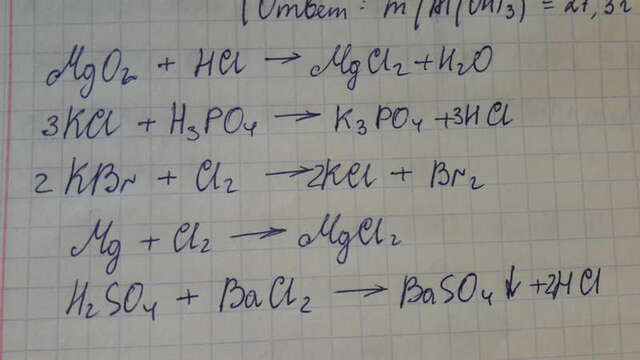 (Ответ: m(Al(OH)3) = 27,3г
MgO2 + HCl → MgCl2 + H2O
3KCl + H3PO4 → K3PO4 + 3HCl
2KBr + Cl2 → 2KCl + Br2
Mg + Cl2 → MgCl2
H2SO4 + BaCl2 → BaSO4↓ + 2HCl